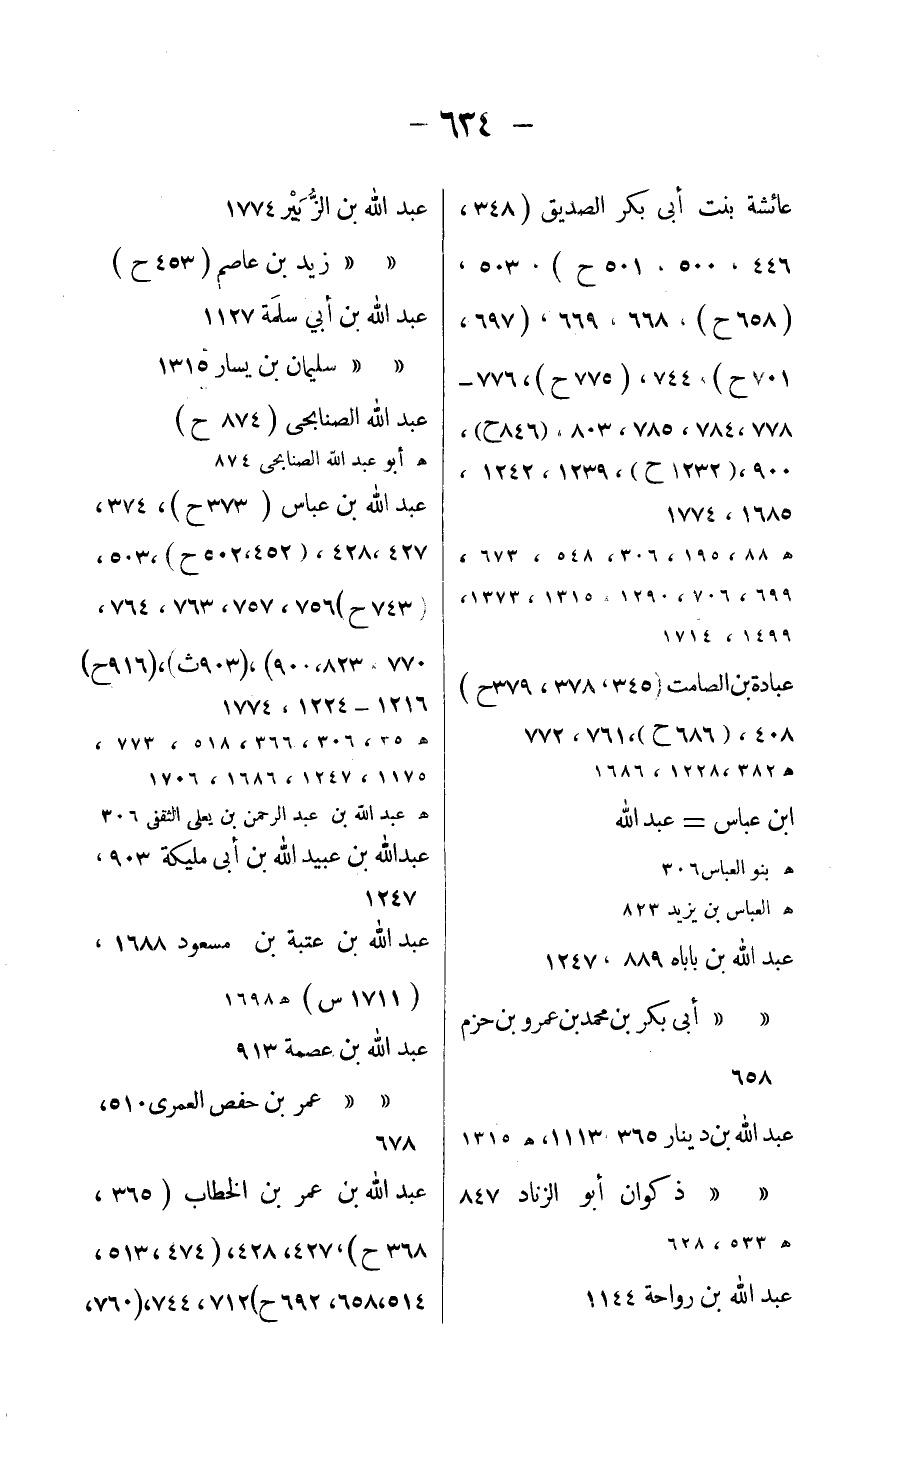 — ٦٣٤ —
عائشة بنت أبى بكر الصديق ( ٣٤٨ ،
٤٤٦ ، ٥٠٠ ، ٥٠١ ح ) ، ٥٠٣ ،
( ٦٥٨ ح ) ، ٦٦٨ ، ٦٦٩ ، ( ٦٩٧ ،
٧٠١ ح ) ، ٧٤٤ ، ( ٧٧٥ ح ) ، ٧٧٦ –
٧٧٨ ، ٧٨٤ ، ٧٨٥ ، ٨٠٣ ، (٨٤٦ح) ،
٩٠٠ ، ( ١٢٣٢ ح ) ، ١٢٣٩ ، ١٢٤٢ ،
١٦٨٥ ، ١٧٧٤
ﻫ ٨٨ ، ١٩٥ ، ٣٠٦ ، ٥٤٨ ، ٦٧٣ ،
٦٩٩ ، ٧٠٦ ، ١٢٩٠ ، ١٣١٥ ، ١٣٧٣ ،
١٤٩٩ ، ١٧١٤
عبادة بن الصامت ( ٣٤٥ ، ٣٧٨ ، ٣٧٩ح )
٤٠٨ ، ( ٦٨٦ ح ) ، ٧٦١ ، ٧٧٢
ﻫ ٣٨٢ ، ١٢٢٨ ، ١٦٨٦
ابن عباس = عبد الله
ﻫ بنو العباس ٣٠٦
ﻫ العباس بن يزيد ٨٢٣
عبد الله بن باباه ٨٨٩ ، ١٢٤٧
« « أبى بكر بن محمد بن عمرو بن حزم
٦٥٨
عبد الله بن دينار ٣٦٥ ١١١٣ ، ﻫ ١٣١٥
« « ذكوان أبو الزناد ٨٤٧
ﻫ ٥٣٣ ، ٦٢٨
عبد الله بن رواحة ١١٤٤
عبد الله بن الزُّبَيْر ١٧٧٤
« « زيد بن عاصم ( ٤٥٣ ح )
عبد الله بن أبي سلَمَة ١١٢٧
« « سليمان بن يسار ١٣١٥
عبد الله الصنابحى ( ٨٧٤ ح )
ﻫ أبو عبد الله الصنابحى ٨٧٤
عبد الله بن عباس ( ٣٧٣ح ) ، ٣٧٤ ،
٤٢٧ ، ٤٢٨ ، ( ٤٥٢ ، ٥٠٢ ح ) ، ٥٠٣ ،
( ٧٤٣ ح ) ٧٥٦ ، ٧٥٧ ، ٧٦٣ ، ٧٦٤ ،
٧٧٠ ، ٨٢٣ ، ٩٠٠) ، (٩٠٣ث) ، (٩١٦ح)
١٢١٦ – ١٢٢٤ ، ١٧٧٤
ﻫ ٣٥ ، ٣٠٦ ، ٣٦٦ ، ٥١٨ ، ٧٧٣ ،
١١٧٥ ، ١٢٤٧ ، ١٦٨٦ ، ١٧٠٦
ﻫ عبد الله بن عبد الرحمن بن يعلى الثقفى ٣٠٦
عبدالله بن عبيد الله بن أبى مليكة ٩٠٣ ،
١٢٤٧
عبد الله بن عتبة بن مسعود ١٦٨٨ ،
( ١٧١١ س ) ﻫ ١٦٩٨
عبد الله بن عصمة ٩١٣
« « عمر بن حفص العمرى ٥١٠ ،
٦٧٨
عبد الله بن عمر بن الخطاب ( ٣٦٥ ،
٣٦٨ ح ) ، ٤٢٧ ، ٤٢٨ ، ( ٤٧٤ ، ٥١٣ ،
٥١٤ ، ٦٥٨ ، ٦٩٢ ح) ٧١٢ ، ٧٤٤ ، (٧٦٠ ،